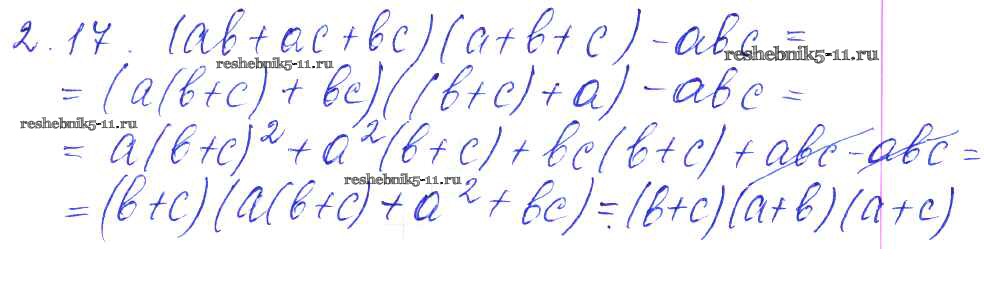 2.17. (ab+ac+bc)(a+b+c)-abc=
reshebnik5-11.ru
reshebnik5-11.ru
=(a(b+c)+bc)((b+c)+a)-abc=
reshebnik5-11.ru
=a(b+c)²+a²(b+c)+bc(b+c)+abc-abc=
reshebnik5-11.ru
=(b+c)(a(b+c)+a²+bc)=(b+c)(a+b)(a+c)